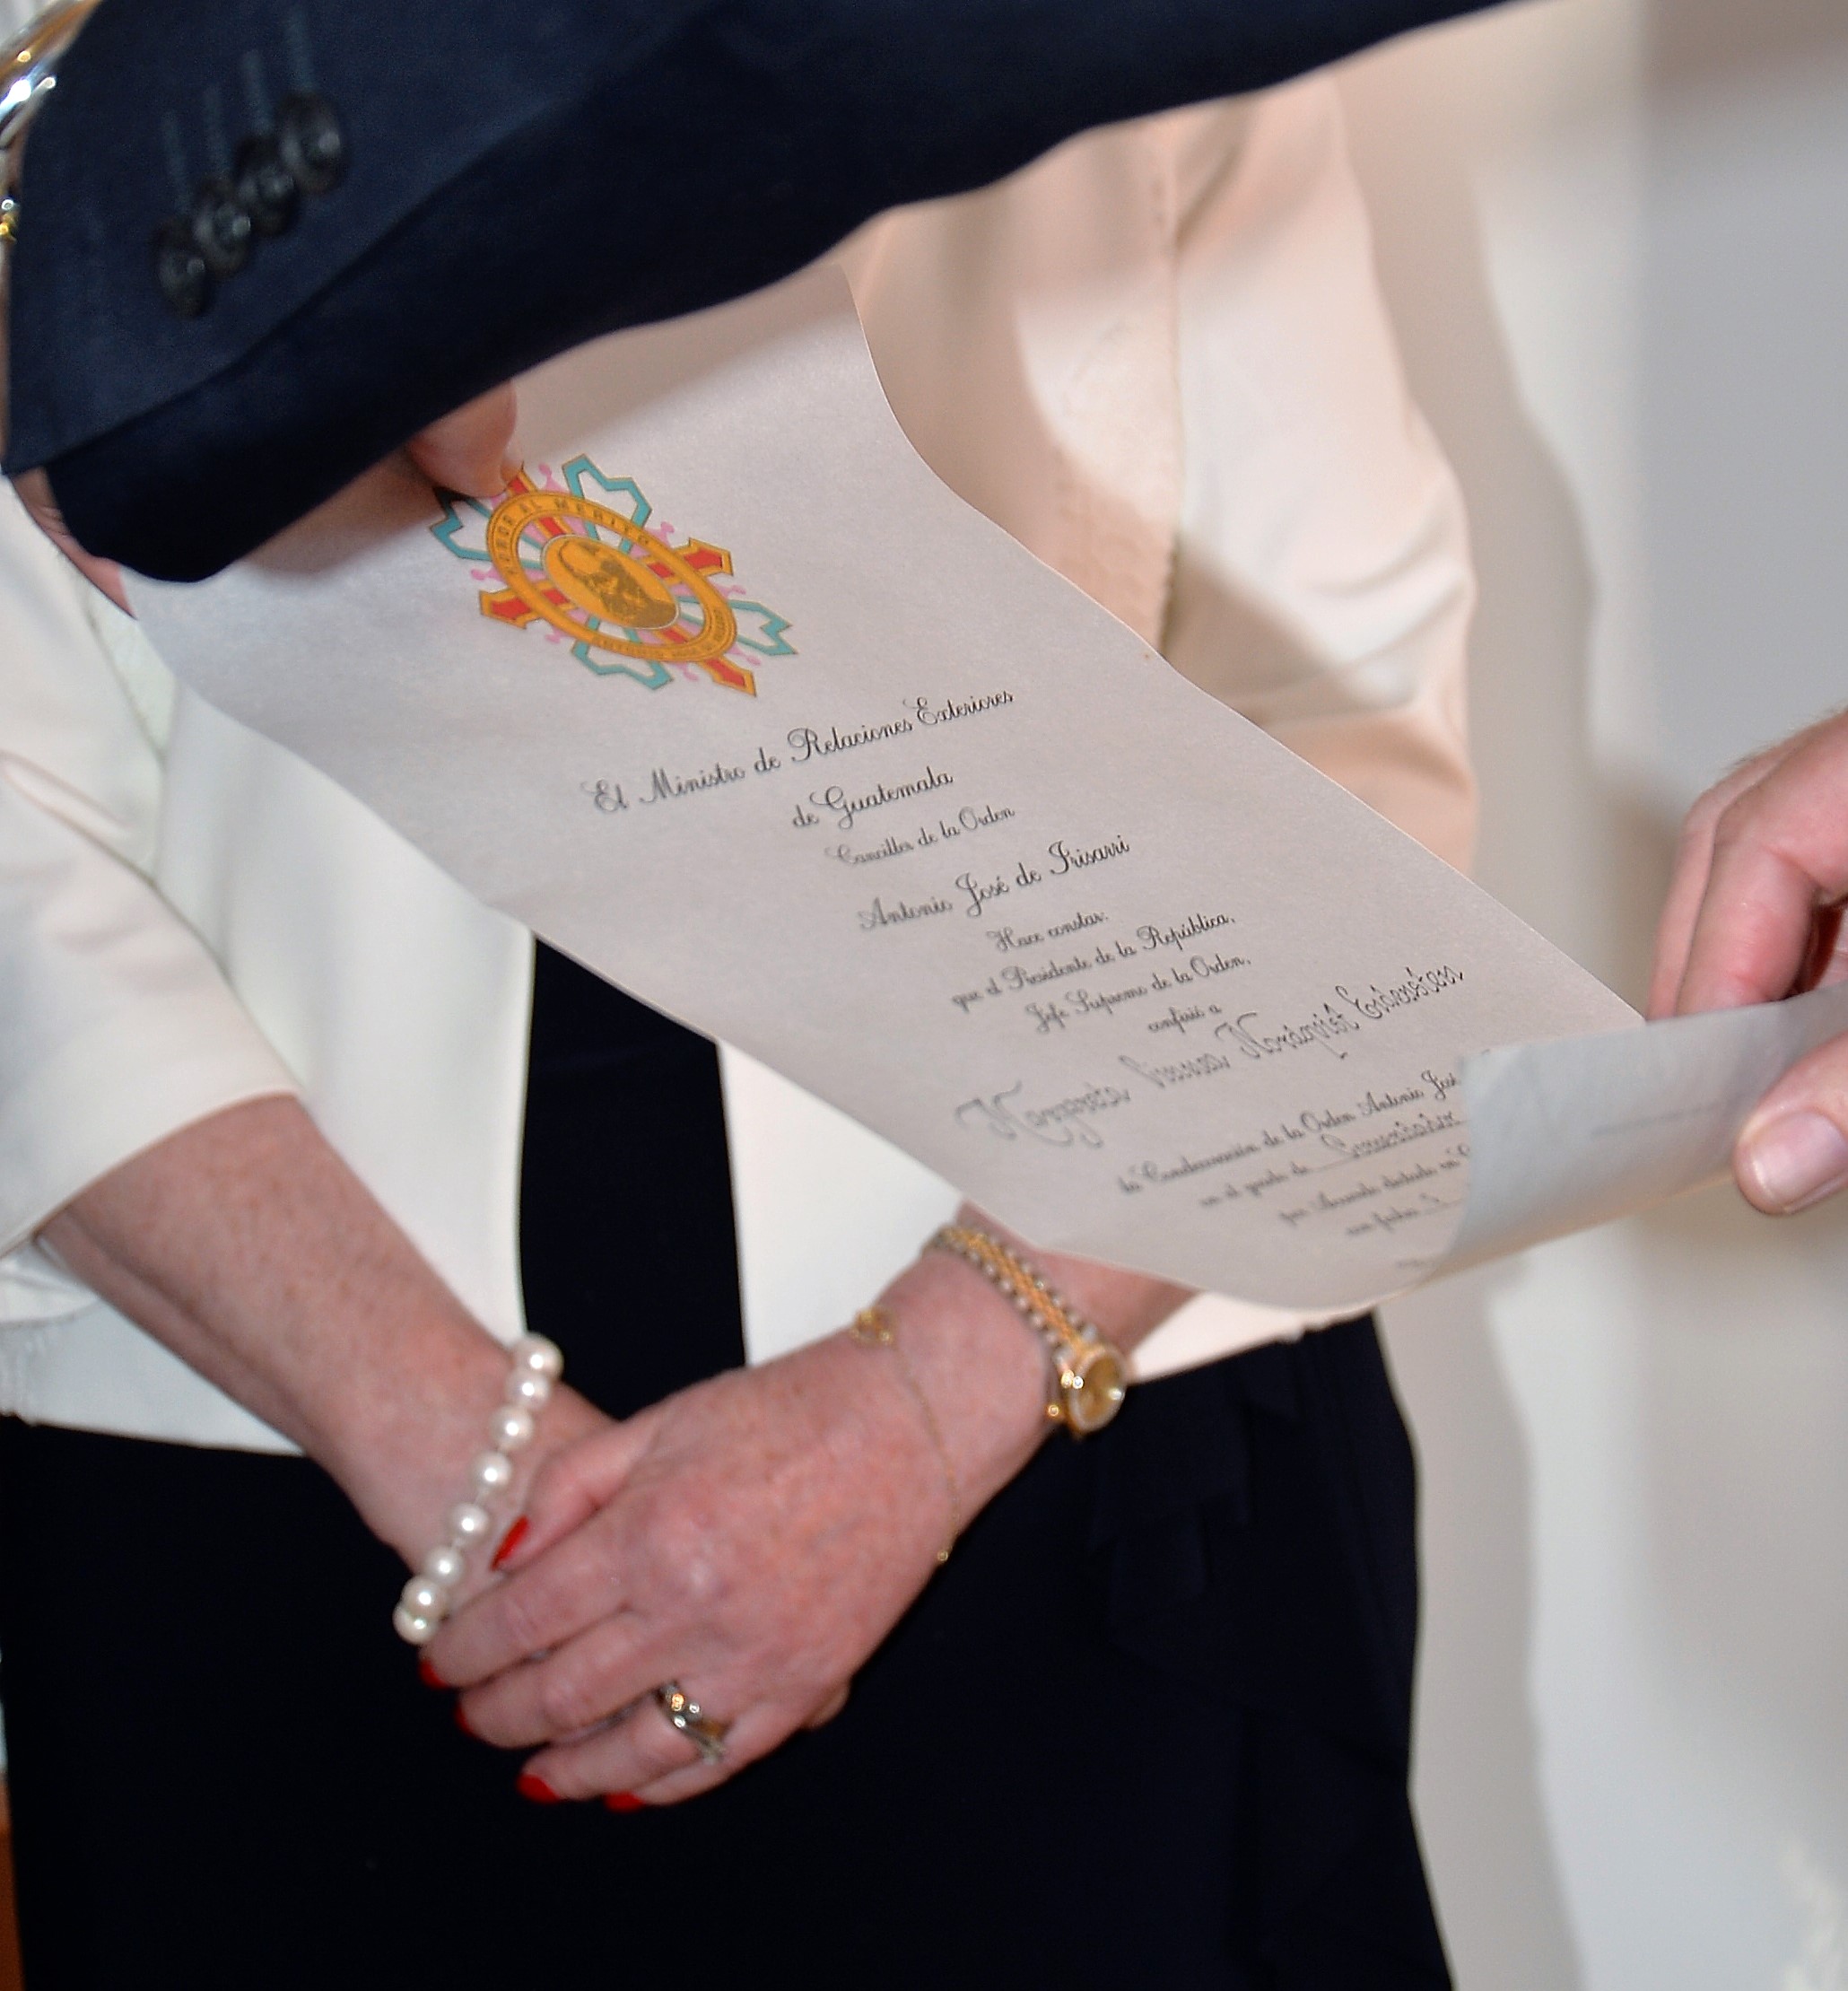 HONOR AL MERITO
ANTONIO JOSE
El Ministro de Relaciones Exteriores
de Guatemala
Canciller de la Orden
Antonio José de Irisarri
Hace constar:
que el Presidente de la República,
Jefe Supremo de la Orden,
confirió a
la Condecoración de la Orden Antonio José
en el grado de
por Acuerdo dictado en
con fecha